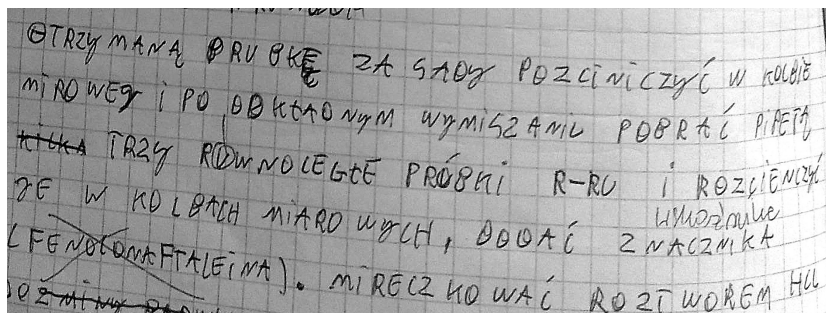 OTRZYMANĄ PRUBKĘ ZA SADY POZCINICZYĆ W KOLBIE
MIROWEJ I PO DOKŁADNYM WYMISZANIU POBRAĆ PIPETĄ
KILKA TRZY RÓWNOLEGŁE PRÓBKI R-RU I ROZCIENCZYĆ
JE W KOLBACH MIAROWYCH, DODAĆ ZNACZNIKA
(FENOLONAFTALEINA). MIRECZKOWAĆ ROZTWOREM HCL